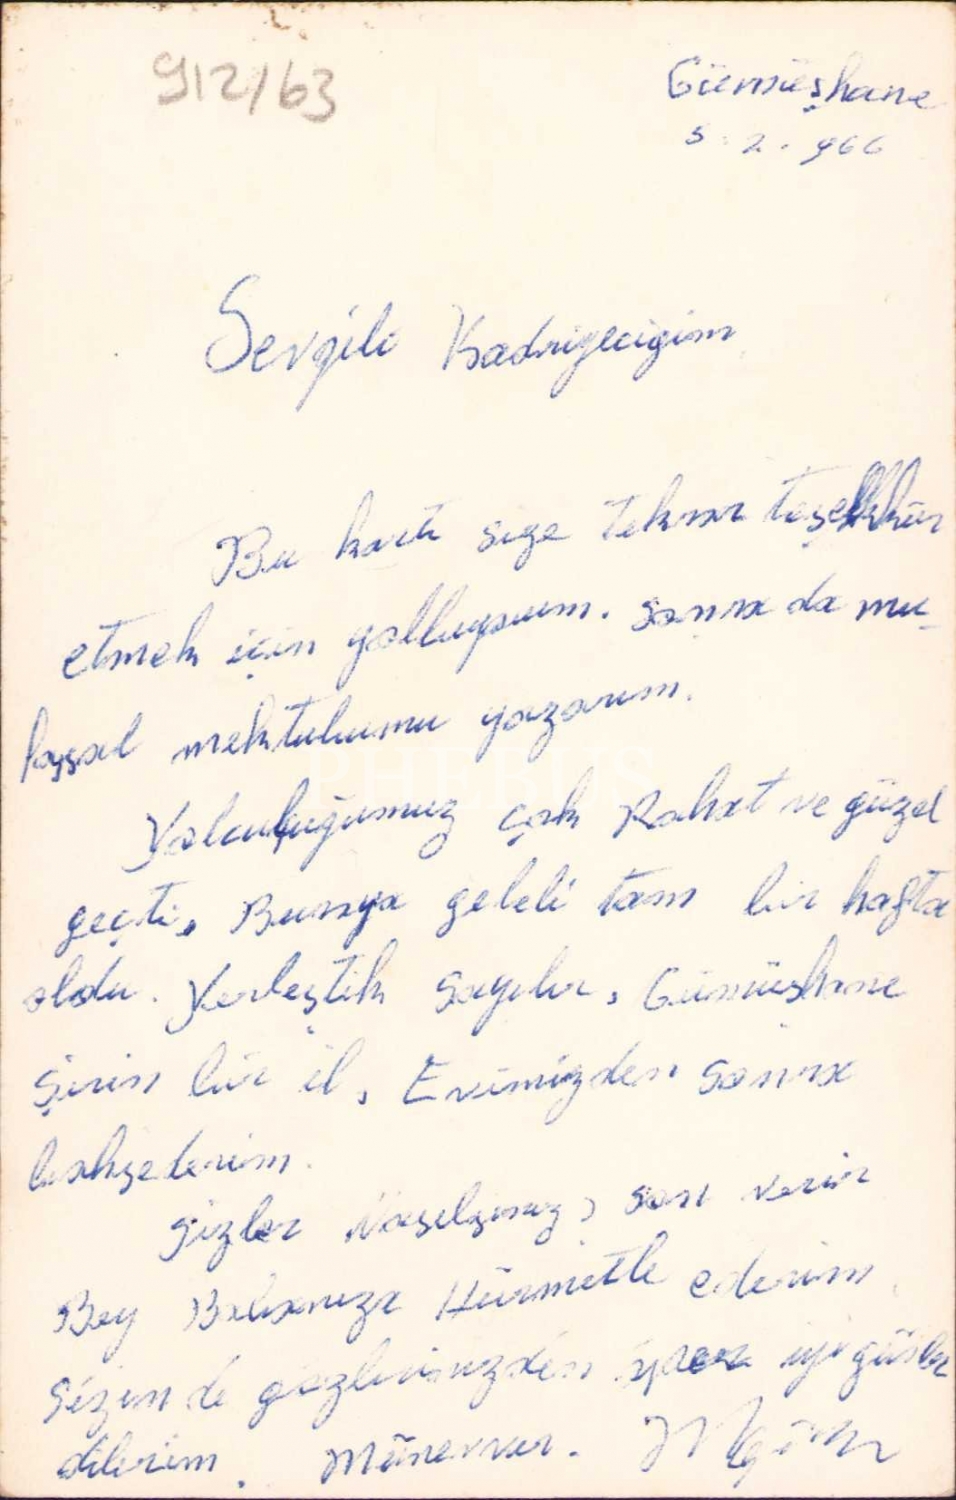 912/63
Gümüşhane
5.2.966
Sevgili Kadriyeciğim
Bu kartı size tekrar teşekkür
etmek için yolluyorum. Sonra da mu-
fassal mektubumu yazarım.
Yolculuğumuz çok Rahat ve güzel
geçti. Buraya geleli tam bir hafta
oldu. Yerleştik sayılır. Gümüşhane
Şirin bir il. Evimizden sonra
bahsederim.
Sizler Nasılsınız,
Bey Babanıza Hürmetle ederim
Sizin de gözlerinizden öper iyi günler
dilerim. Münevver.
PHEBUS